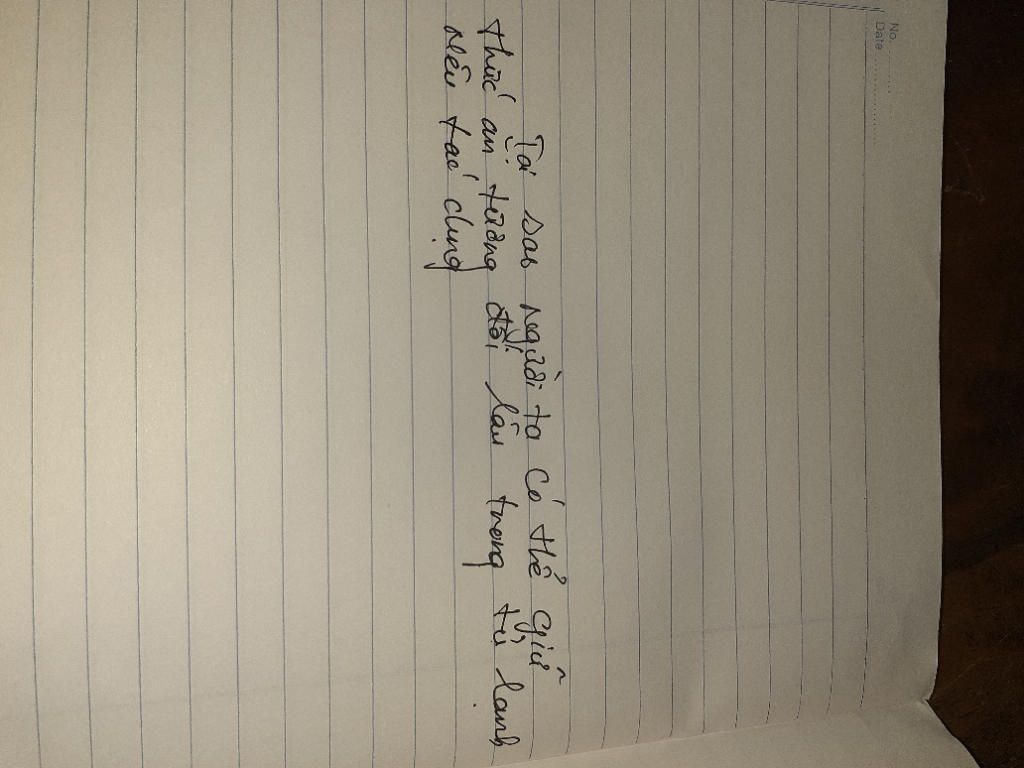 No.
Date
Tại sao người ta có thể giữ
thức ăn tương đối lâu trong tủ lạnh
nêu tác dụng